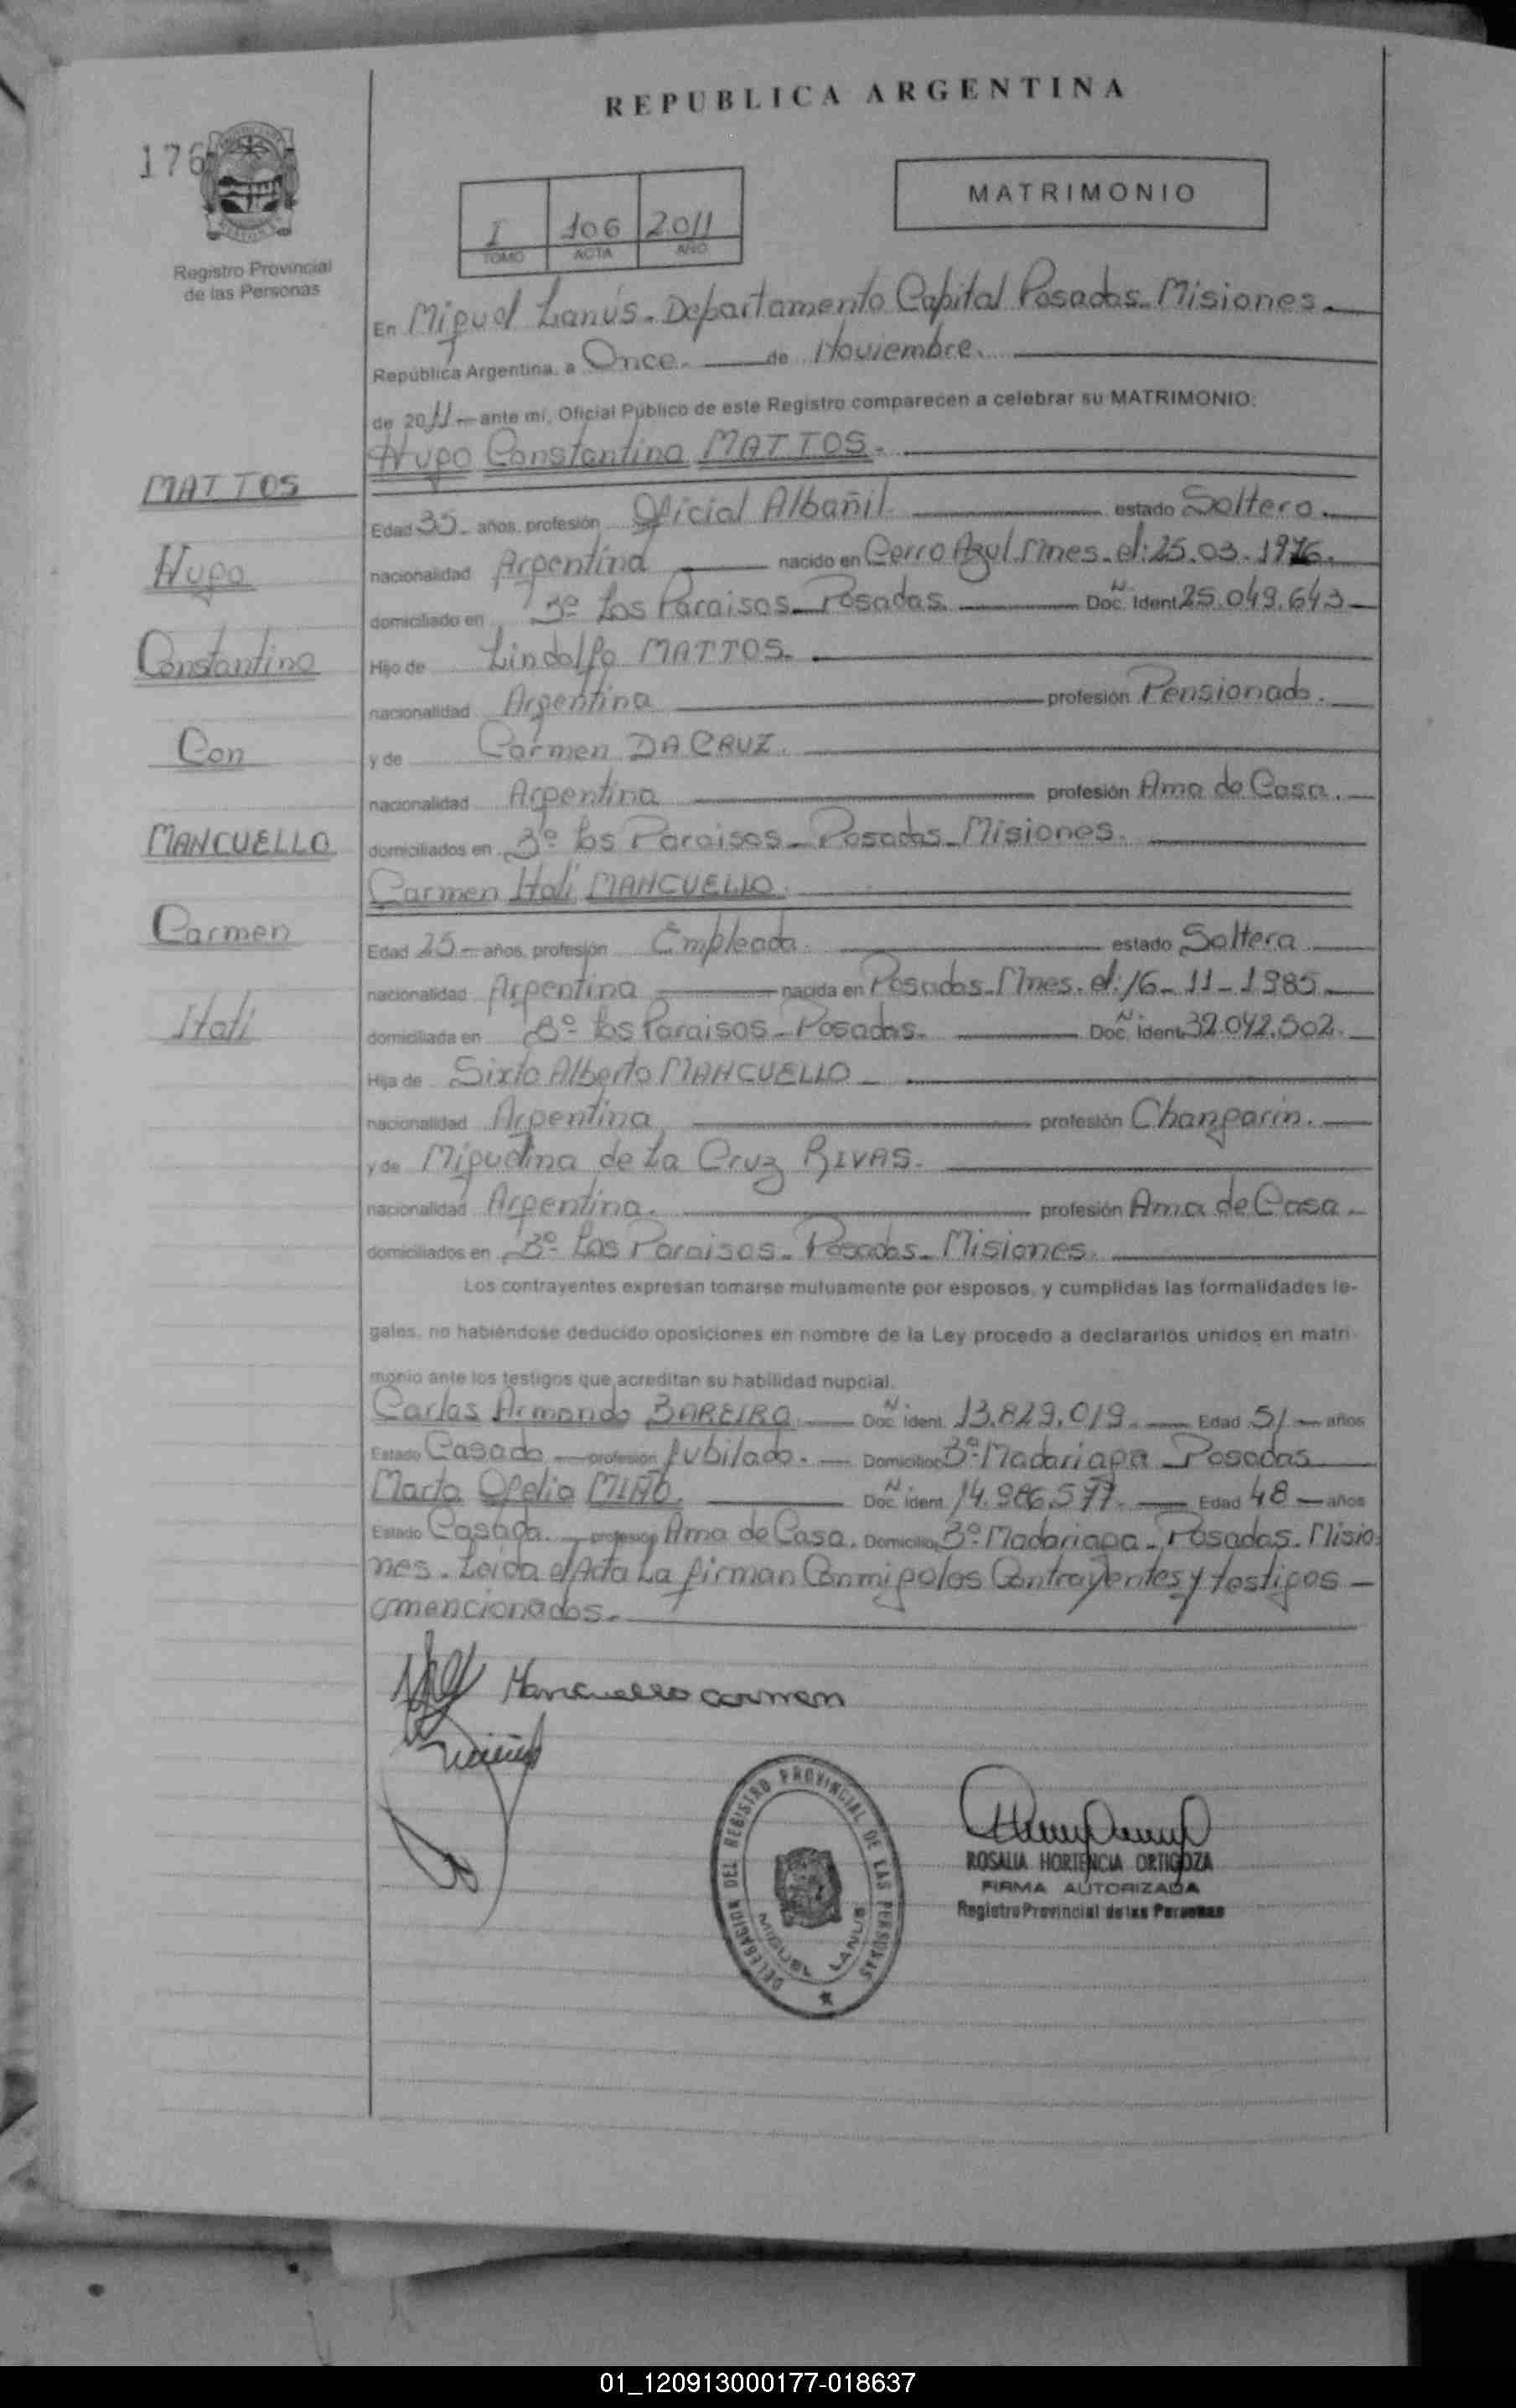 REPUBLICA ARGENTINA
176
MATRIMONIO
I 106 2011
TOMO ACTA AÑO
Registro Provincial
de las Personas
En Miguel Lanús. Departamento Capital Posadas Misiones.
República Argentina, a Once. de Noviembre.
de 2011 ante mí, Oficial Público de este Registro comparecen a celebrar su MATRIMONIO:
Hugo Constantino MATTOS.
MATTOS
Edad 35 años, profesión Oficial Albañil. estado Soltero.
Hugo
nacionalidad Argentina nacido en Cerro Azul Mnes. el: 25.03.1976.
domiciliado en Bº Los Paraisos Posadas. Doc. Ident. Nº 25.049.643
Constantino
Hijo de Lindolfo MATTOS.
nacionalidad Argentina profesión Pensionado.
Con
y de Carmen DA CRUZ.
nacionalidad Argentina profesión Ama de Casa.
MANCUELLO
domiciliados en Bº Los Paraisos Posadas Misiones.
Carmen Itali MANCUELLO.
Carmen
Edad 25 años, profesión Empleada. estado Soltera
nacionalidad Argentina nacida en Posadas Mnes. el: 16-11-1985
Itali
domiciliada en Bº Los Paraisos - Posadas. Doc. Ident. Nº 32.042.502.
Hija de Sixto Alberto MANCUELLO
nacionalidad Argentina profesión Changarín.
y de Miguelina de La Cruz RIVAS.
nacionalidad Argentina. profesión Ama de Casa.
domiciliados en Bº Los Paraisos - Posadas - Misiones.
Los contrayentes expresan tomarse mutuamente por esposos, y cumplidas las formalidades le-
gales, no habiéndose deducido oposiciones en nombre de la Ley procedo a declararlos unidos en matri-
monio ante los testigos que acreditan su habilidad nupcial.
Carlos Armando BAREIRO Doc. Ident. Nº 13.829.019. Edad 51 años
Estado Casado profesión Jubilado. Domicilio Bº Madariaga Posadas
Marta Ofelia MIÑO. Doc. Ident. Nº 14.986.577. Edad 48 años
Estado Casada. profesión Ama de Casa. Domicilio Bº Madariaga - Posadas. Misio-
nes. Leida el Acta La firman Conmigo los Contrayentes y testigos
mencionados.
Mancuello carmen
DELEGACION DEL REGISTRO PROVINCIAL DE LAS PERSONAS
MIGUEL LANUS
ROSALIA HORTENCIA ORTIGOZA
FIRMA AUTORIZADA
Registro Provincial de las Personas
01_120913000177-018637